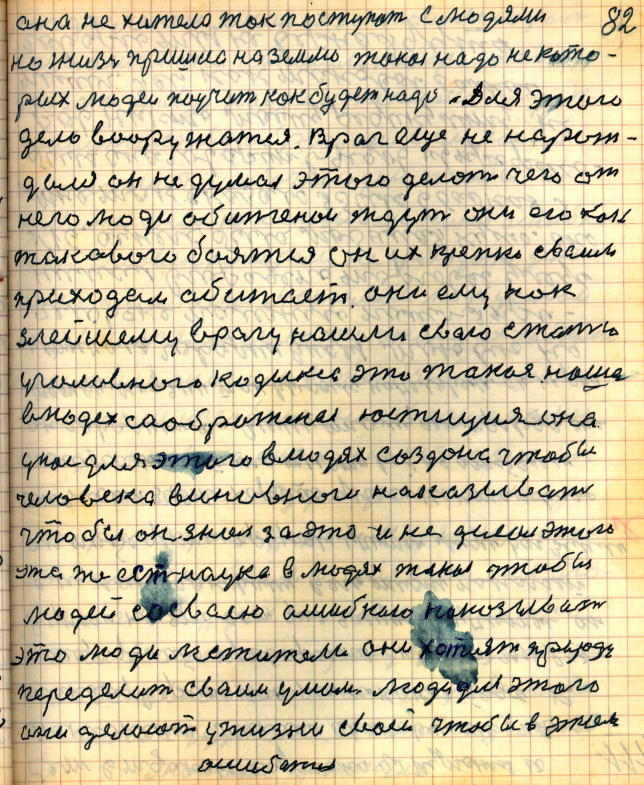 82
она не хитела ток поступат с людями
но жизн пришла на землю такая надо некото-
рих людей поучит как будет надо. Для этого
дело вооружатся. Враг еще не нарож-
дался он не думал этого делот чего от
него люди обиженои ждут они его как
такового боятся он их крепко сваим
приходам обижает. они ему как
злейшему врагу нашли сваю статю
уголовного кодекса это такая наша
в людех саображеная юстиция она
для этого в людях создона чтобы
человека виновного наказиват
чтобы он знал за это и не делал этого
эта же ест наука в людях такая чтобы
людей со сваею ошибкаю наказиват
это люди мстители они хотият природу
переделит сваим умом. люди для этого
они делоют у жизни своей чтобы в этом
ошибатся